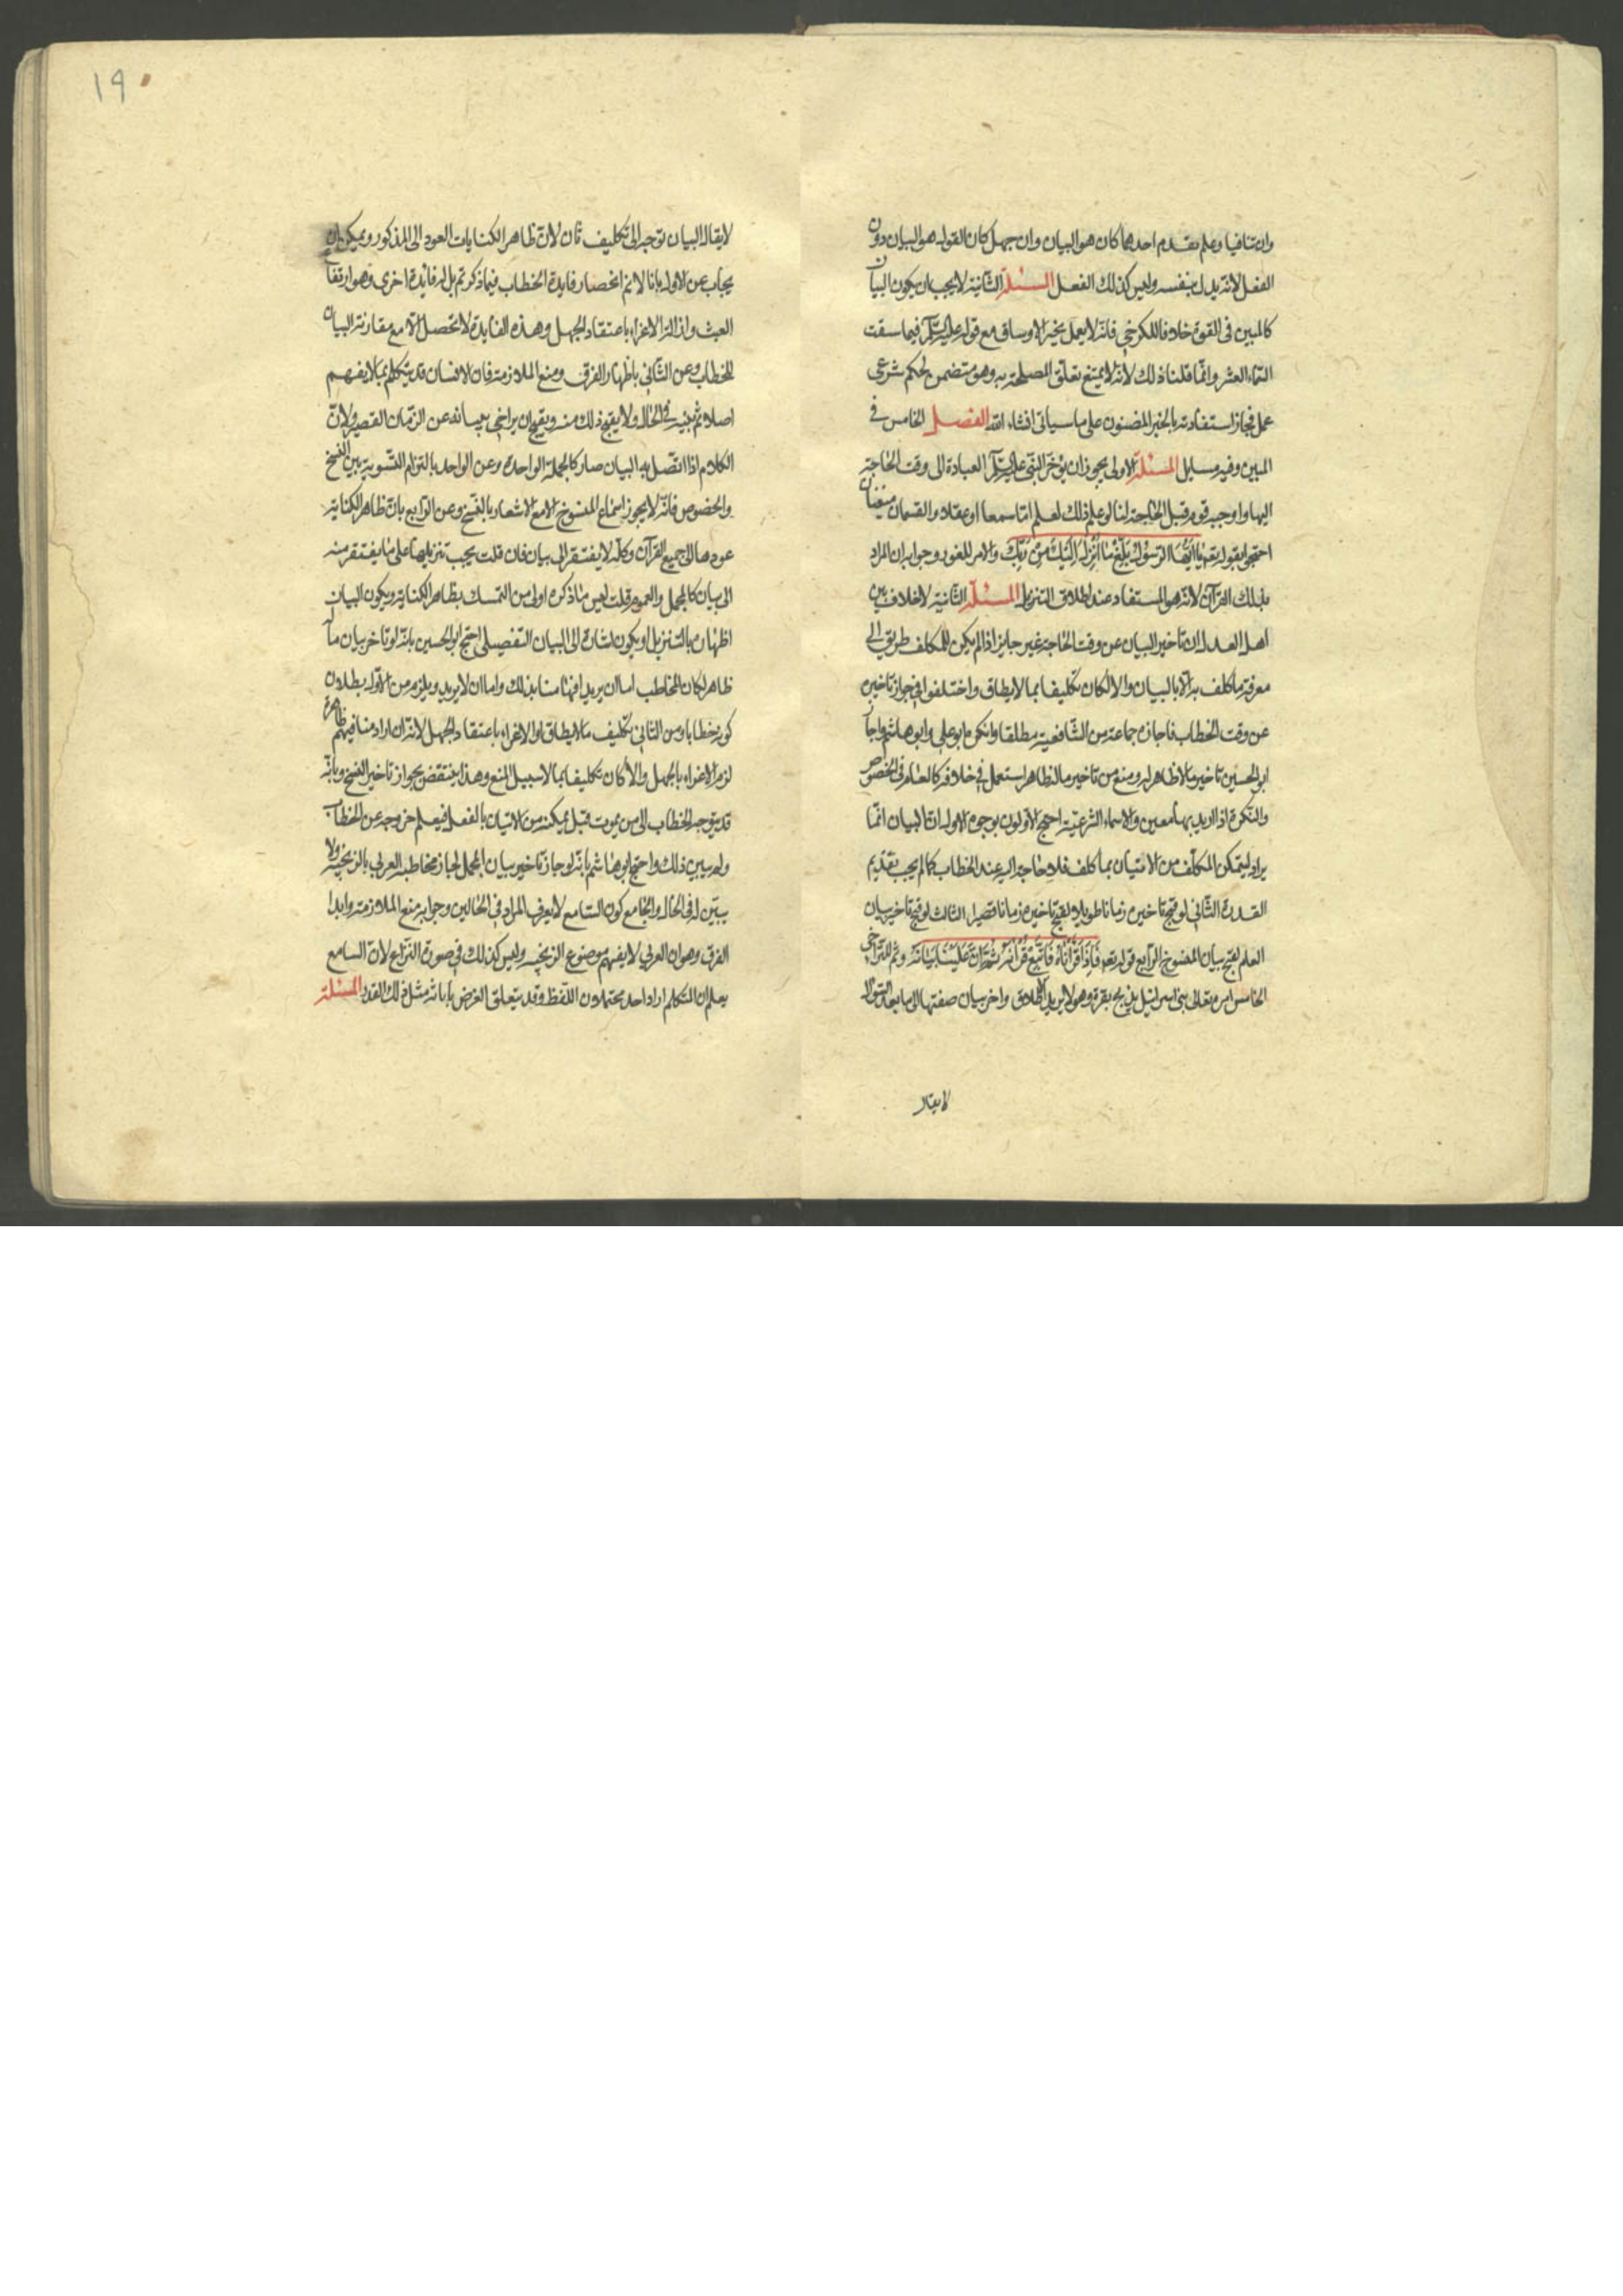 وان تنافيا وعلم تقدم احدهما كان هو البيان وان جهل كان القول هو البيان دون
الفعل لانه يدل بنفسه وليس كذلك الفعل المسئلة الثانية لا يجب ان يكون البيان
كالمبين في القوة خلافا للكرخي فانه لا يعمل بخبر الاوساق مع قوله عليه السلم فيما سقت
السماء العشر وانما قلنا ذلك لانه لا يمتنع تعلق المصلحة به وهو متضمن لحكم شرعى
عمل فجاز استفادته بالخبر المضنون على ما سياتى انشاء الله الفصل الخامس في
المبين وفيه مسايل المسئلة الاولى يجوز ان يؤخر النبي عليه السلم العبادة الى وقت الحاجة
اليها واوجبه قوم قبل الحاجة لنا لو علم ذلك لعلم اما سمعا او عقلا والقسمان منفيان
احتجوا بقوله تعه يا ايها الرسول بلغ ما انزل اليك من ربك والامر للفور وجوابه ان المراد
بذلك القرآن لانه هو المستفاد عند اطلاق التنزيل المسئلة الثانية لا خلاف بين
اهل العدل ان تاخير البيان عن وقت الحاجة غير جايز اذا لم يكن للمكلف طريق الى
معرفة ما كلف به الا بالبيان والا لكان تكليفا بما لا يطاق واختلفوا في جواز تاخيره
عن وقت الخطاب فاجازه جماعة من الشافعية مطلقا وانكره ابو علي وابو هاشم واجاز
ابو الحسين تاخير ما لا ظاهر له ومنع من تاخير ما له ظاهر استعمل في خلافه كالعام في الخصوص
والنكرة اذا اريد بها معين والاسماء الشرعية احتج الاولون بوجوه الاول ان البيان انما
يراد ليتمكن المكلف من الاتيان بما كلف فلا حاجة اليه عند الخطاب كما لم يجب تقديم
القدرة الثاني لو قبح تاخيره زمانا طويلا لقبح تاخيره زمانا قصيرا الثالث لو قبح تاخير بيان
العلم لقبح بيان المنسوخ الرابع قوله تعه فاذا قرأناه فاتبع قرآنه ثم ان علينا بيانه وثم للتراخى
الخامس امره تعالى بنى اسرائيل بذبح بقرة وهو لا يريد الاطلاق واخر بيان صفتها الى ما بعد السؤال
لا يقال
١٩
لا يقال البيان توجه الى تكليف ثان لان ظاهر الكنايات العود الى المذكور ويمكن ان
يجاب عن الاول بانا لا نم انحصار فايدة الخطاب فيما ذكرتم بل له فايدة اخرى وهو ارتفاع
العبث واذالة الاغراء باعتقاد الجهل وهذه الفايدة لا تحصل الا مع مقارنة البيان
للخطاب وعن الثاني باظهار الفرق ومنع الملازمة فان الانسان قد يتكلم بما لا يفهم
اصلا ثم يبينه في الحال ولا يقبح ذلك منه ويقبح ان يراخي بيانه عن الزمان القصير ولان
الكلام اذا اتصل به البيان صار كالجملة الواحدة وعن الواحد بالتزام التسوية بين النسخ
والخصوص فانه لا يجوز اسماع المنسوخ الا مع الاشعار بالنسخ وعن الرابع بان ظاهر الكناية
عودها الى جميع القرآن وكله لا يفتقر الى بيان فان قلت يجب تنزيلها على ما يفتقر منه
الى بيان كالمجمل والعموم قلت ليس ما ذكره اولى من التمسك بظاهر الكناية ويكون البيان
اظهاره بالتنزيل او يكون اشارة الى البيان التفصيلي احتج ابو الحسين بانه لو تاخر بيان ما
ظاهر لكان المخاطب اما ان يريد افهامنا بذلك واما ان لا يريد ويلزم من الاول بطلان
كونه خطابا ومن الثاني تكليف ما لا يطاق او الاغراء باعتقاد الجهل لانه ان اراد منا فهم ظاهره
لزم الاغراء بالجهل والا كان تكليفا بما لا سبيل المنع وهذا ينتقض بجواز تاخير النسخ وبانه
قد يتوجه الخطاب الى من يموت قبل تمكنه من الاتيان بالفعل فيعلم خروجه عن الخطاب
ولم يبين ذلك واحتج ابو هاشم بانه لو جاز تاخير بيان المجمل لجاز مخاطبة العربي بالزنجية ولا
يبين له في الحال والجامع كون السامع لا يعرف المراد في الحالين وجوابه منع الملازمة وابدا
الفرق وهو ان العربي لا يفهم موضوع الزنجية وليس كذلك في صورة النزاع لان السامع
يعلم ان المتكلم اراد احد محتملات اللفظ وقد يتعلق الغرض بابانة مثل ذلك القدر المسئلة